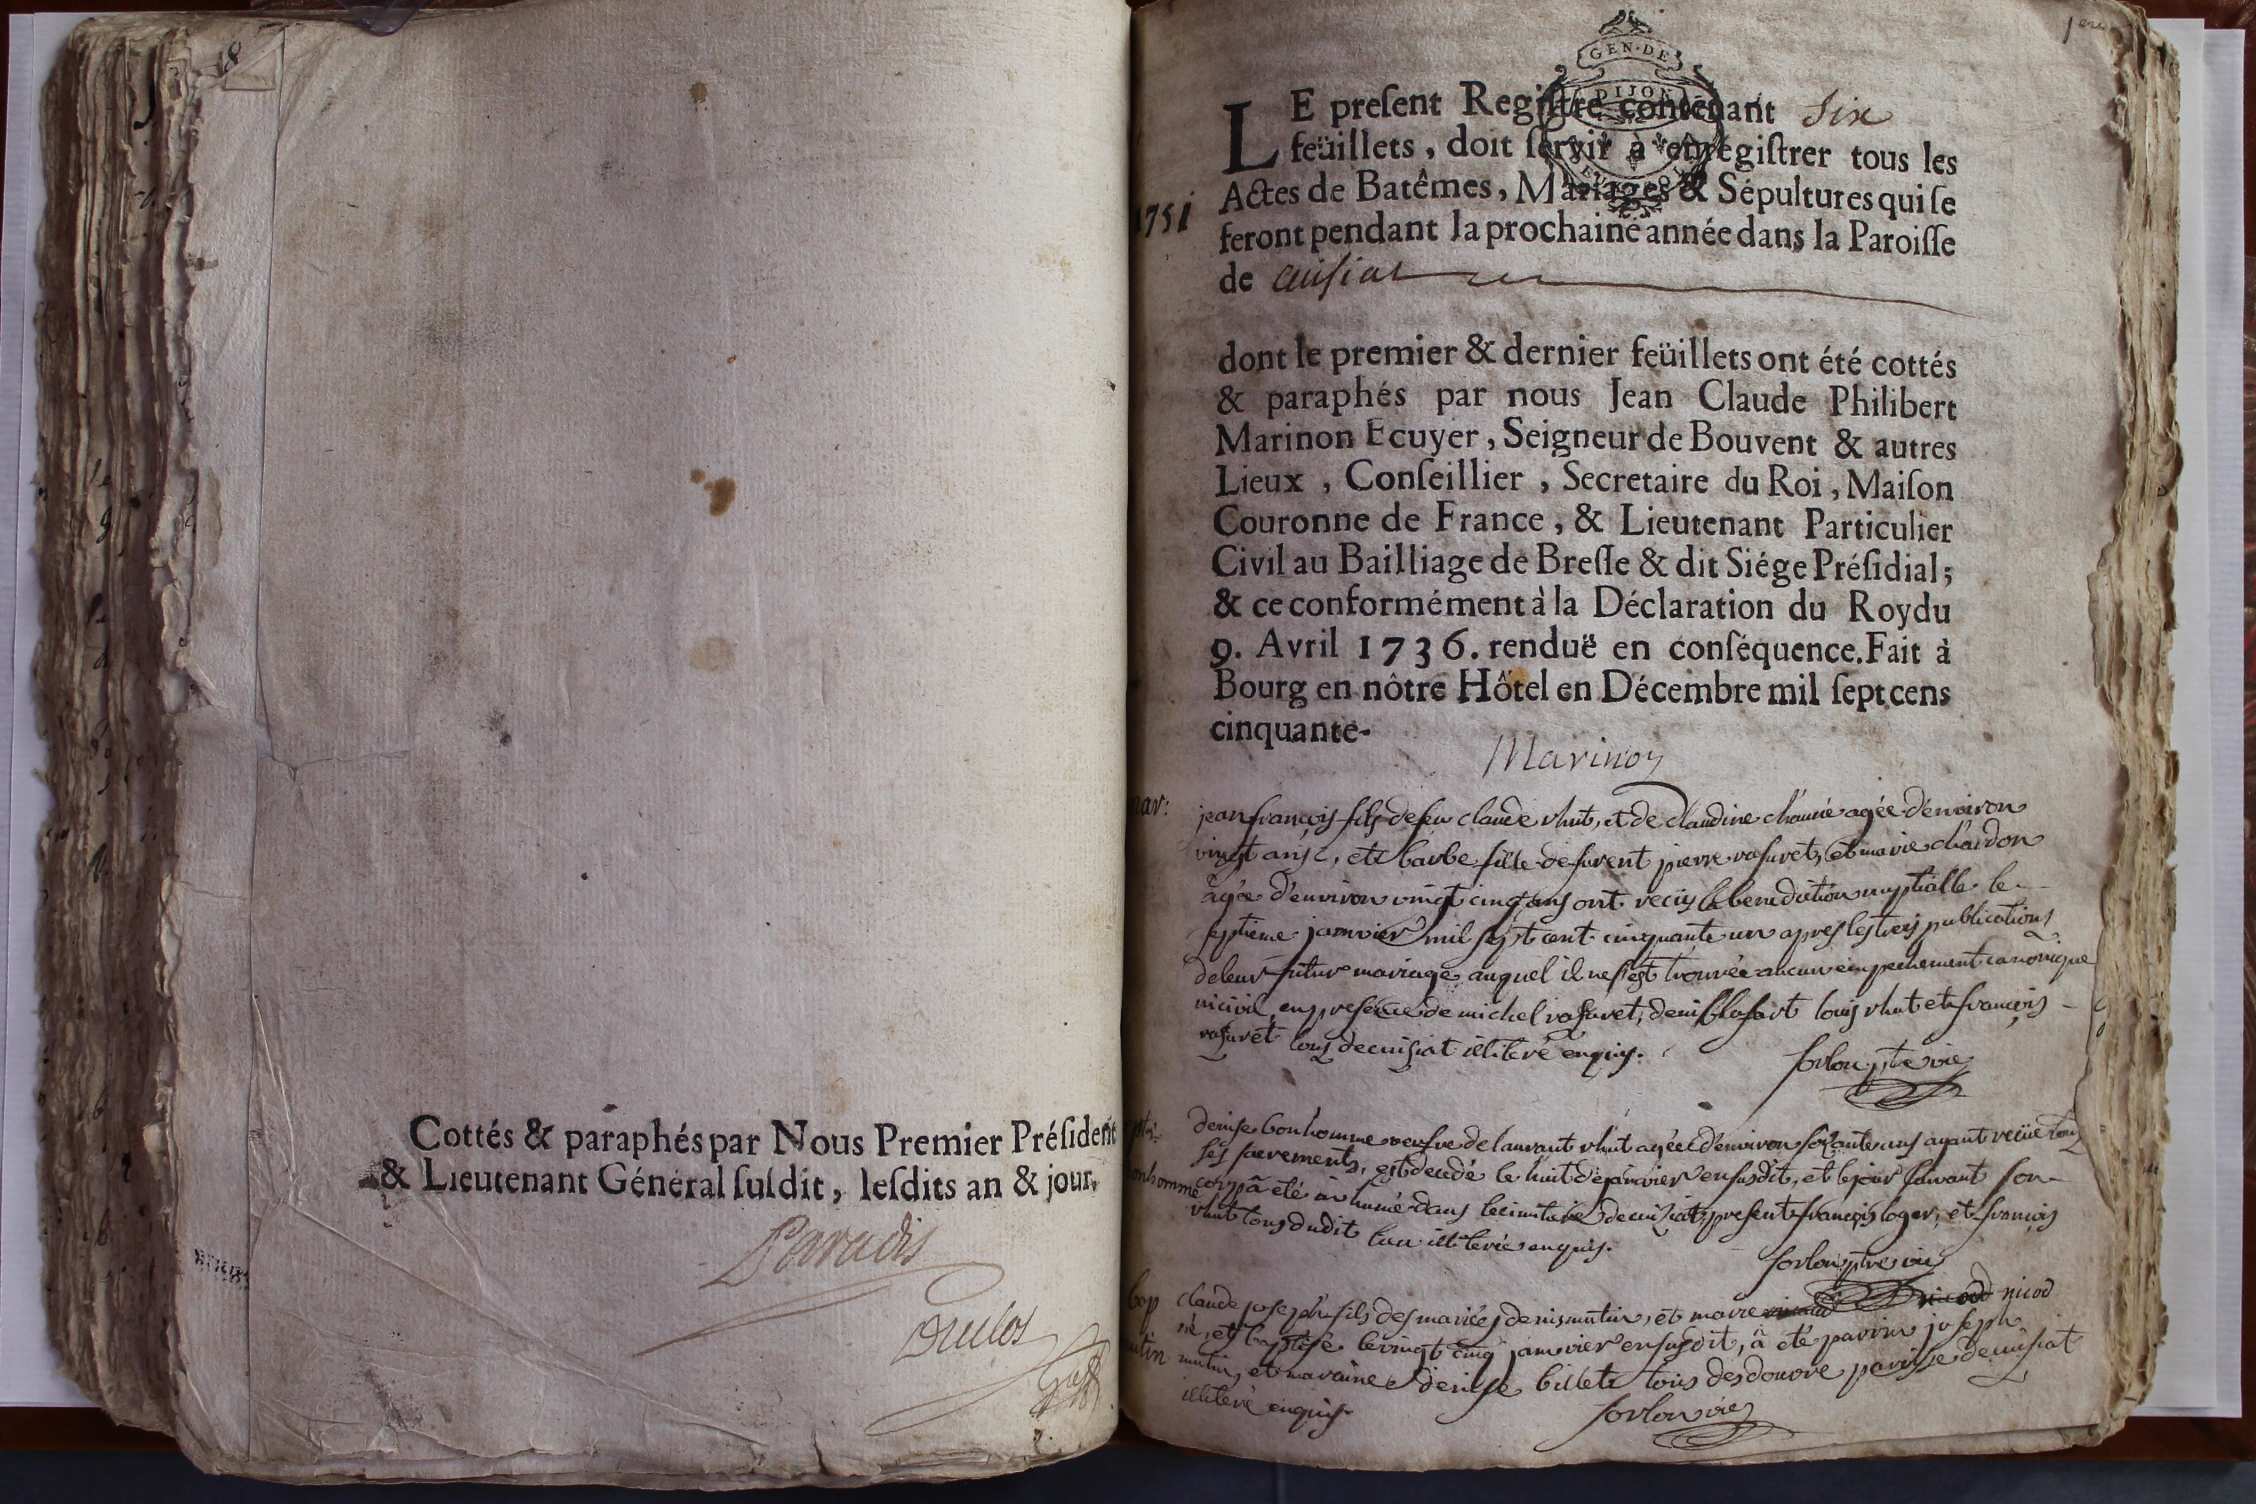 18
Cottés & paraphés par Nous Premier Préſident
& Lieutenant Général ſuſdit, leſdits an & jour,
Paradis
Duclos
1ere
GEN·DE
DIJON
LE preſent Regiſtre contenant six
feüillets, doit ſervir à enregiſtrer tous les
Actes de Batêmes, Mariages & Sépultures qui ſe
1751
feront pendant la prochaine année dans la Paroiſſe
de cuisiat
dont le premier & dernier feüillets ont été cottés
& paraphés par nous Jean Claude Philibert
Marinon Ecuyer, Seigneur de Bouvent & autres
Lieux, Conſeillier, Secretaire du Roi, Maiſon
Couronne de France, & Lieutenant Particulier
Civil au Bailliage de Breſſe & dit Siége Préſidial;
& ce conformément à la Déclaration du Roy du
9. Avril 1736. renduë en conſéquence. Fait à
Bourg en nôtre Hôtel en Décembre mil ſept cens
cinquante-
Marinon
mar: jean françois fils de feu claude rhut, et de claudine chanée agée d'environ
vingt ans, et barbe fille de furent pierre rasuret, et marie chardon
agée d'environ vingt cinq ans ont reçus la benediction nuptialle le
septieme janvier mil sept cent cinquante un apres les trois publications
de leur futur mariage auquel il ne s'est trouvée aucun empechement canonique
ni civil, en presence de michel rasuret, denis lasart louis rhut et françois
rasuret tous de cuisiat illiteré enquis.
sorlon ptre vic
denise bonhomme vefve de laurant rhut agée d'environ soixante ans ayant reçüe tous
ses sacrements, est decedé le huit de janvier en susdit, et le jour suivant son
onhomme corp a eté inhumé dans le cimitiere de cuisiat, present françois loger, et françois
rhut tous dudit lieu illiteré enquis.
sorlon ptre vic
bap claude joseph fils des mariés denis mutin, et marie nicod
né, et baptisé le vingt cinq janvier en susdit, à eté parrin joseph
utin mutin, et maraine denise billet tous des douvre paroisse de cuisiat
illiteré enquis.
sorlon vic